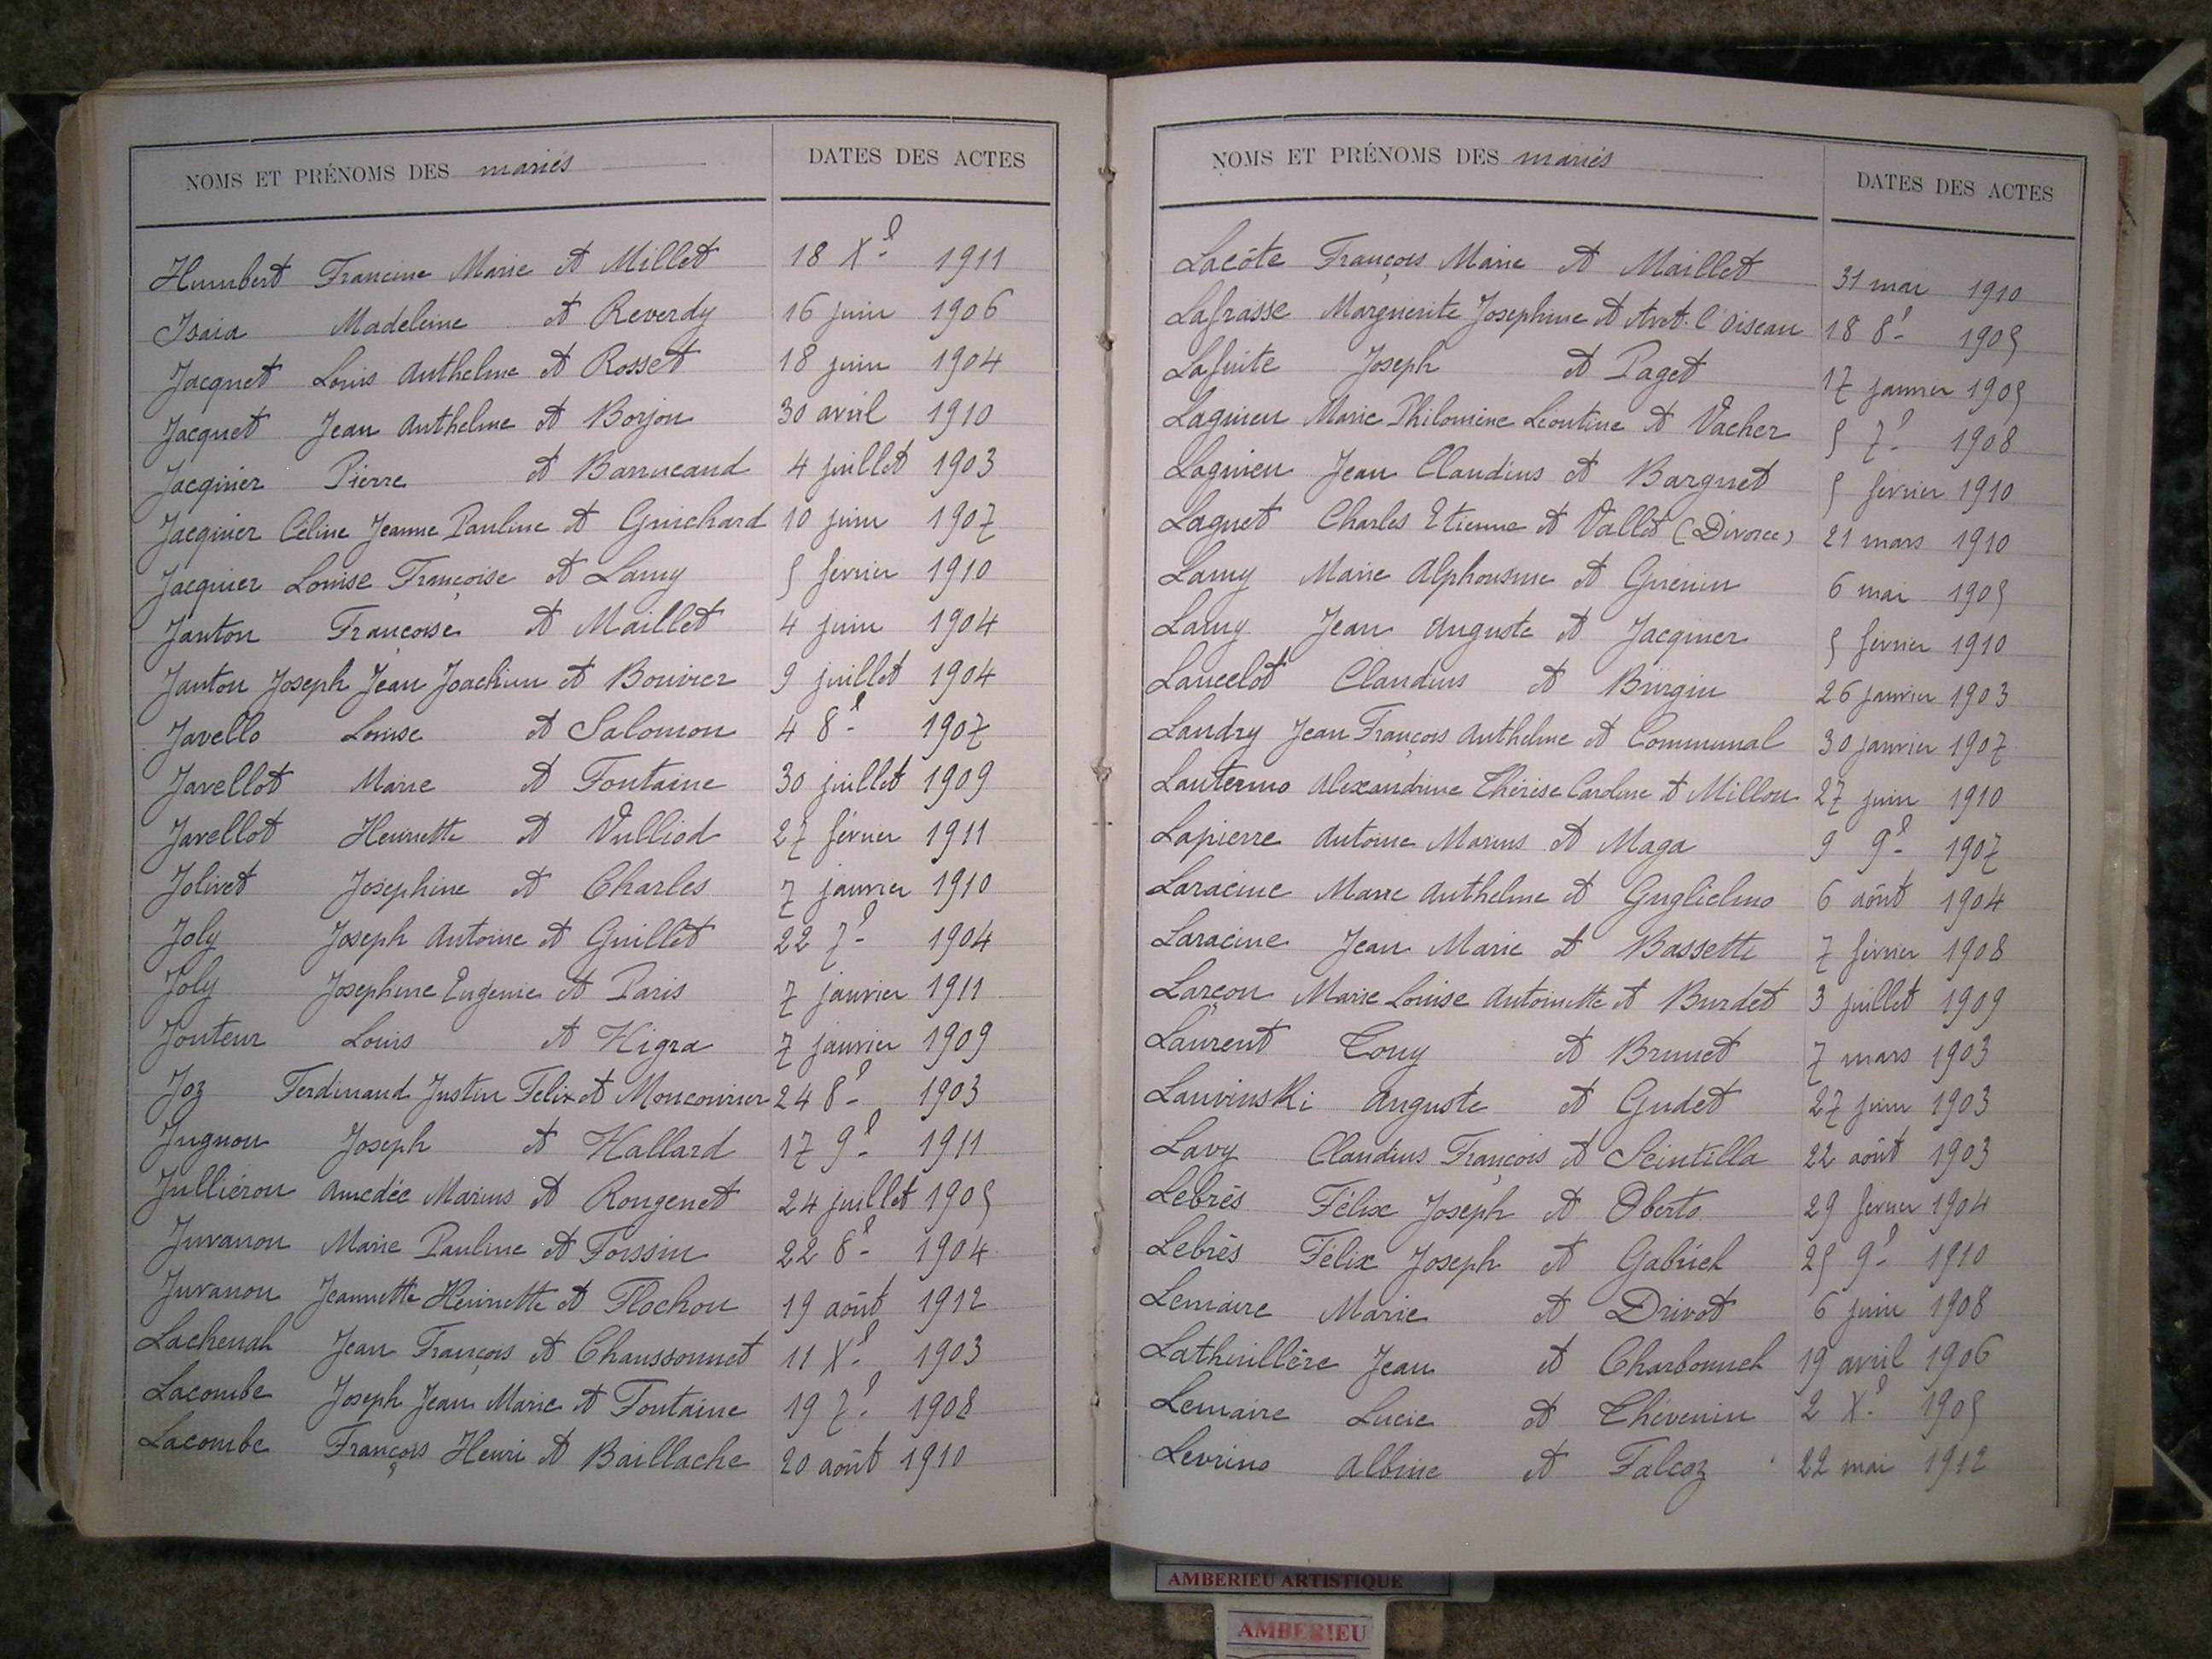 NOMS ET PRÉNOMS DES mariés DATES DES ACTES
Humbert Francine Marie et Millet 18 Xe 1911
Isaia Madeleine et Reverdy 16 juin 1906
Jacquet Louis Anthelme et Rosset 18 juin 1904
Jacquet Jean Anthelme et Borjon 30 avril 1910
Jacquier Pierre et Barrucand 4 juillet 1903
Jacquier Céline Jeanne Pauline et Guichard 10 juin 1907
Jacquier Louise Françoise et Lamy 5 février 1910
Janton Françoise et Maillet 4 juin 1904
Janton Joseph Jean Joachim et Bouvier 9 juillet 1904
Javello Louise et Salomon 4 8e 1907
Javellot Marie et Fontaine 30 juillet 1909
Javellot Henriette et Vulliod 27 février 1911
Jolivet Joséphine et Charles 7 janvier 1910
Joly Joseph Antoine et Guillet 22 7e 1904
Joly Josephine Eugenie et Paris 7 janvier 1911
Jouteur Louis et Higra 7 janvier 1909
Joz Ferdinand Justin Felix et Moncourier 24 8e 1903
Jugnon Joseph et Hallard 17 9e 1911
Julliéron Amedée Marius et Rougenet 24 juillet 1905
Juvanon Marie Pauline et Foissin 22 8e 1904
Juvanon Jeannette Henriette et Flochon 19 août 1912
Lachenal Jean François et Chaussonnet 11 Xe 1903
Lacombe Joseph Jean Marie et Fontaine 19 7e 1908
Lacombe François Henri et Baillache 20 août 1910
NOMS ET PRÉNOMS DES mariés DATES DES ACTES
Lacôte François Marie et Maillet 31 mai 1910
Lafrasse Marguerite Josephine et Avet l'Oiseau 18 8e 1905
Lafuite Joseph et Paget 17 janvier 1905
Lagnieu Marie Philomène Léontine et Vacher 5 7e 1908
Lagnieu Jean Claudius et Barguet 5 février 1910
Laguet Charles Etienne et Vallet (Divorce) 21 mars 1910
Lamy Marie Alphonsine et Guénin 6 mai 1905
Lamy Jean Auguste et Jacquier 5 février 1910
Lancelot Claudius et Burgin 26 janvier 1903
Landry Jean François Anthelme et Communal 30 janvier 1907
Lantermo Alexandrine Thérèse Caroline et Millon 27 juin 1910
Lapierre Antoine Marius et Maga 9 9e 1907
Laracine Marie Anthelme et Guglielmo 6 août 1904
Laracine Jean Marie et Bassette 7 février 1908
Larçon Marie Louise Antoinette et Burdet 3 juillet 1909
Laurent Tony et Brunet 7 mars 1903
Lauvinski Auguste et Gudet 27 juin 1903
Lavy Claudius François et Scintilla 22 août 1903
Lebrès Félix Joseph et Oberto 29 fevrier 1904
Lebrès Félix Joseph et Gabriel 25 9e 1910
Lemaire Marie et Drivot 6 juin 1908
Lathuillère Jean et Charbonnel 19 avril 1906
Lemaire Lucie et Thévenin 2 Xe 1905
Levrino Albine et Falcoz 22 mai 1912
AMBERIEU ARTISTIQUE
AMBERIEU